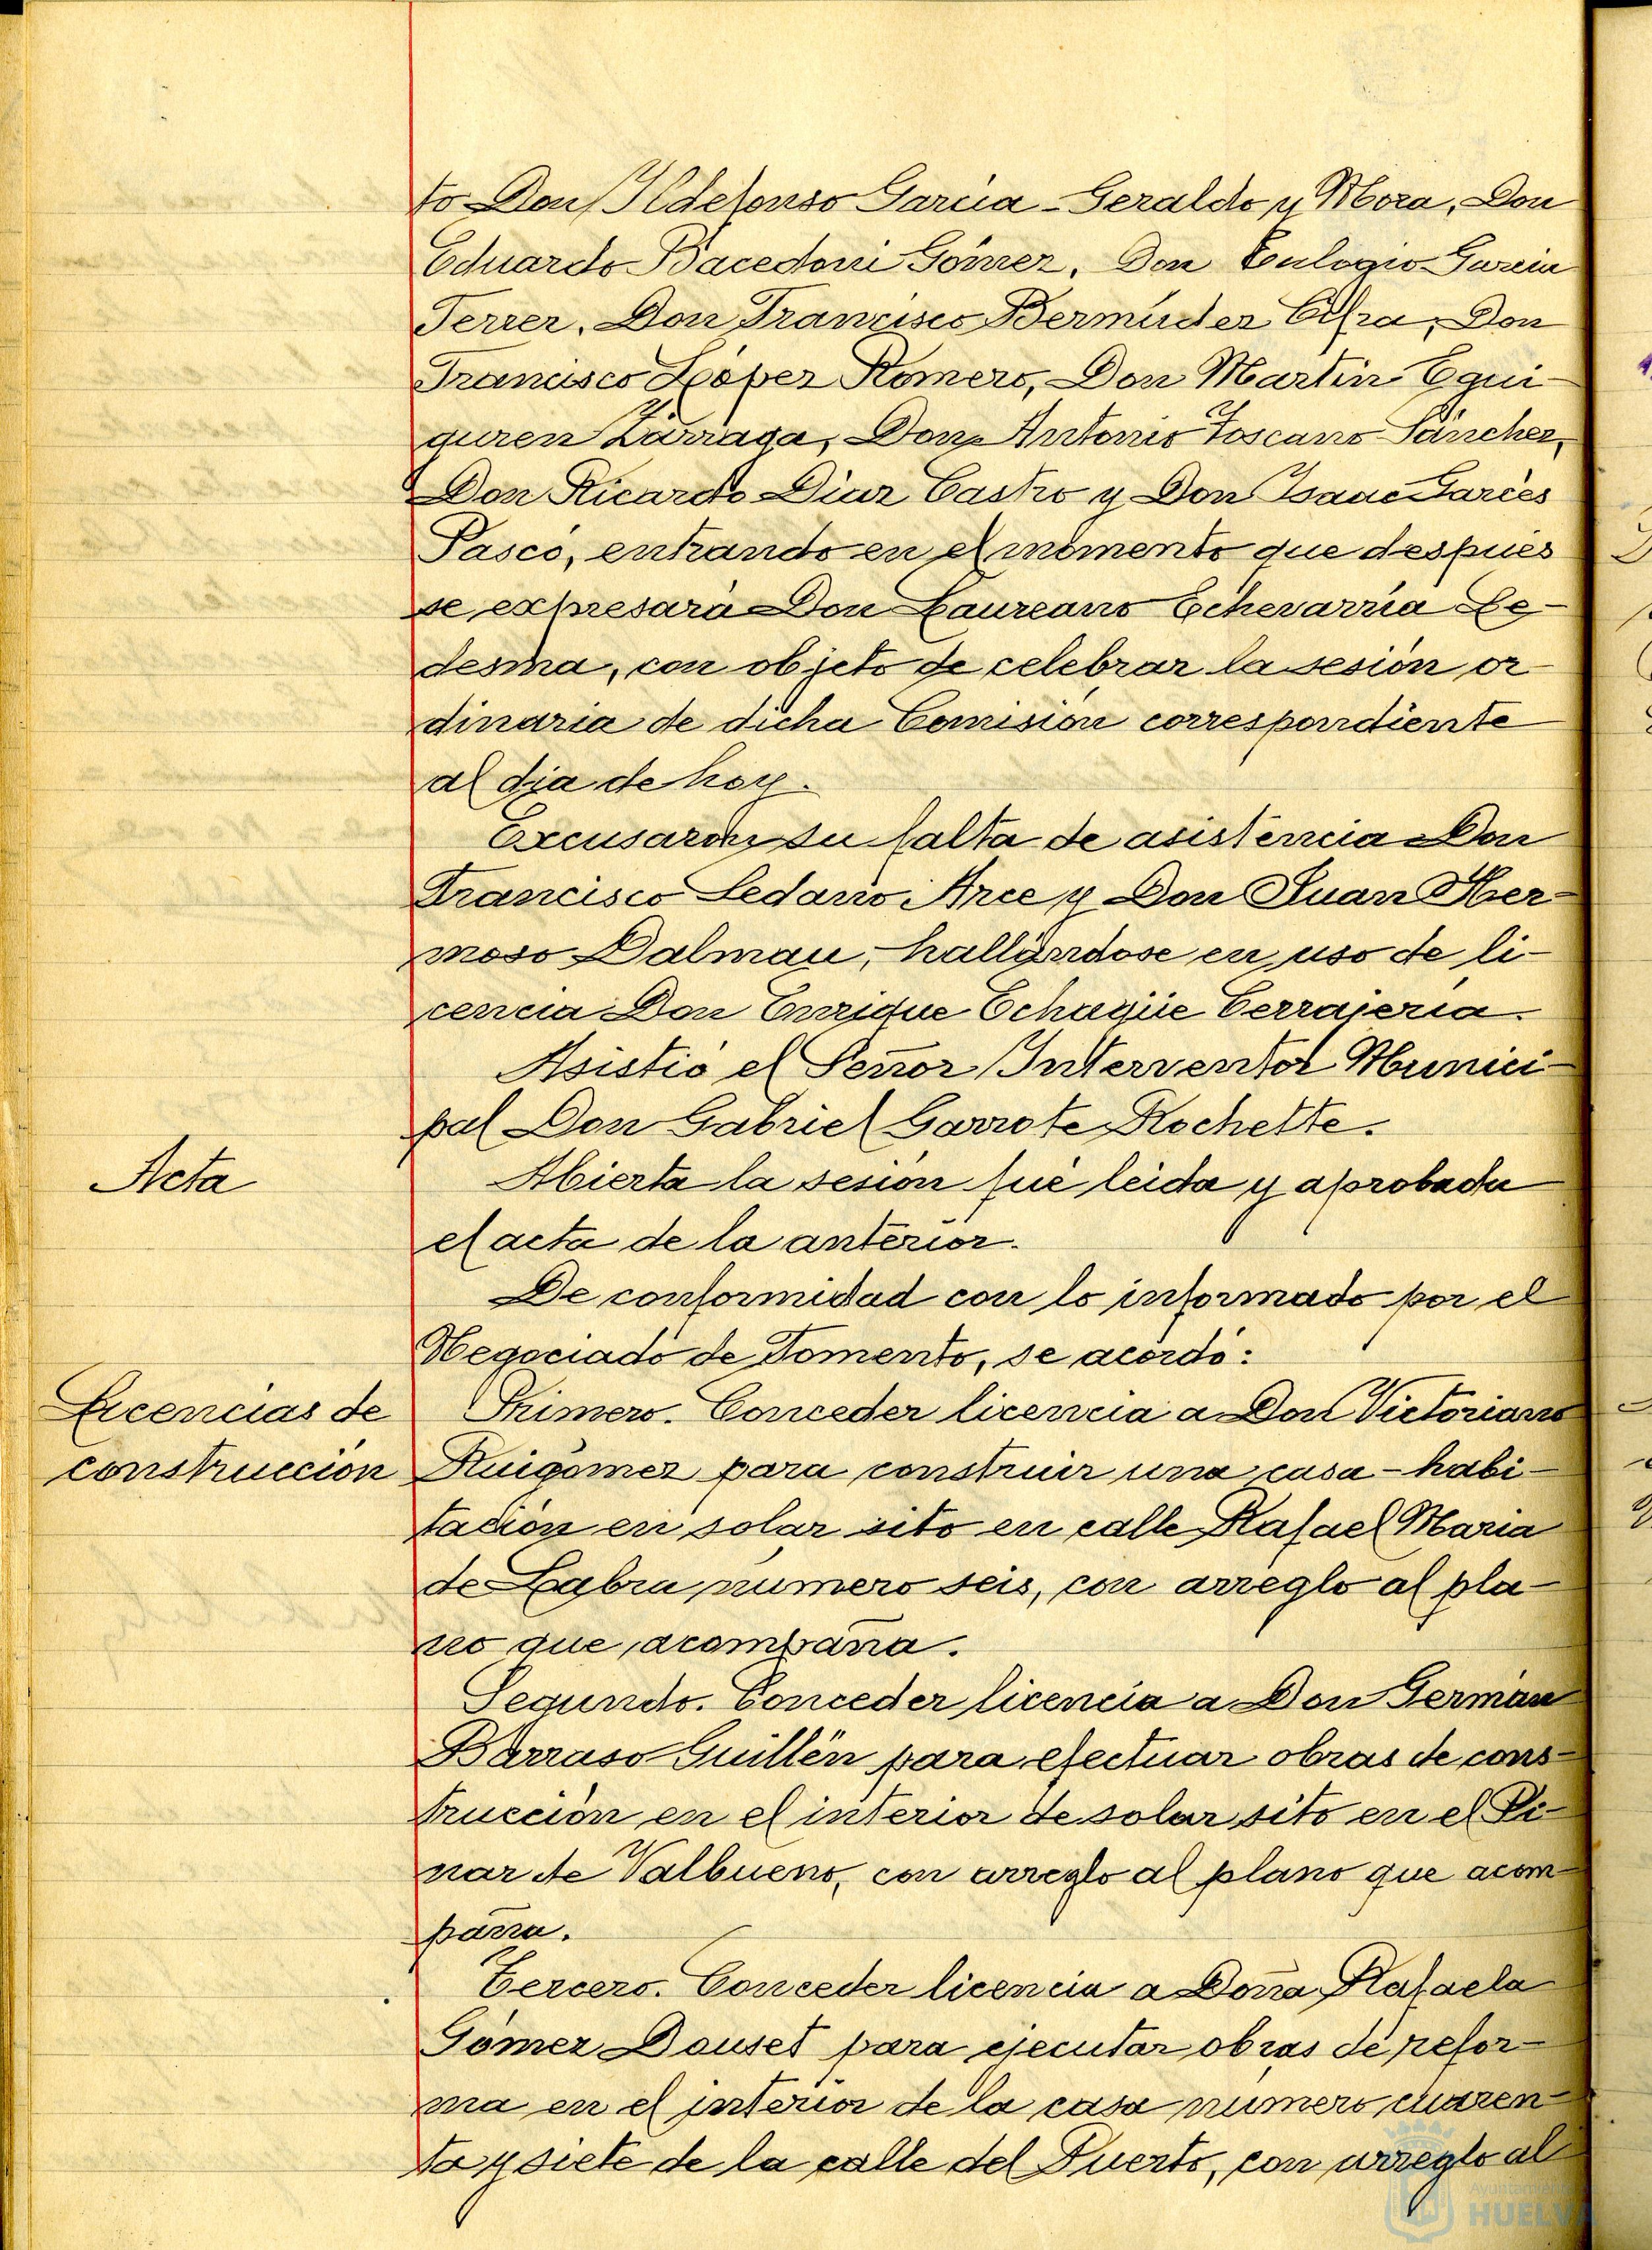 to Don Ildefonso García-Geraldo y Mora, Don
Eduardo Bacedoni Gómez, Don Eulogio García
Ferrer, Don Francisco Bermúdez Cifra, Don
Francisco López Romero, Don Martín Egui-
guren Zárraga, Don Antonio Toscano Sánchez,
Don Ricardo Díaz Castro y Don Isaac Garcés
Pascó, entrando en el momento que después
se expresará Don Laureano Echevarría Le-
desma, con objeto de celebrar la sesión or-
dinaria de dicha Comisión correspondiente
al día de hoy.
Excusaron su falta de asistencia Don
Francisco Sedano Arce y Don Juan Her-
moso Dalmau, hallándose en uso de li-
cencia Don Enrique Echagüe Cerrajería.
Asistió el Señor Interventor Munici-
pal Don Gabriel Garrote Rochette.
Acta
Abierta la sesión fué leida y aprobada
el acta de la anterior.
De conformidad con lo informado por el
Negociado de Fomento, se acordó:
Licencias de
construcción
Primero. Conceder licencia a Don Victoriano
Ruigómez para construir una casa-habi-
tación en solar sito en calle Rafael María
de Labra número seis, con arreglo al pla-
no que acompaña.
Segundo. Conceder licencia a Don Germán
Barraso Guillén para efectuar obras de cons-
trucción en el interior de solar sito en el Pi-
nar de Valbueno, con arreglo al plano que acom-
paña.
Tercero. Conceder licencia a Doña Rafaela
Gómez Dauset para ejecutar obras de refor-
ma en el interior de la casa número cuaren-
ta y siete de la calle del Puerto, con arreglo al
Ayuntamiento
HUELVA